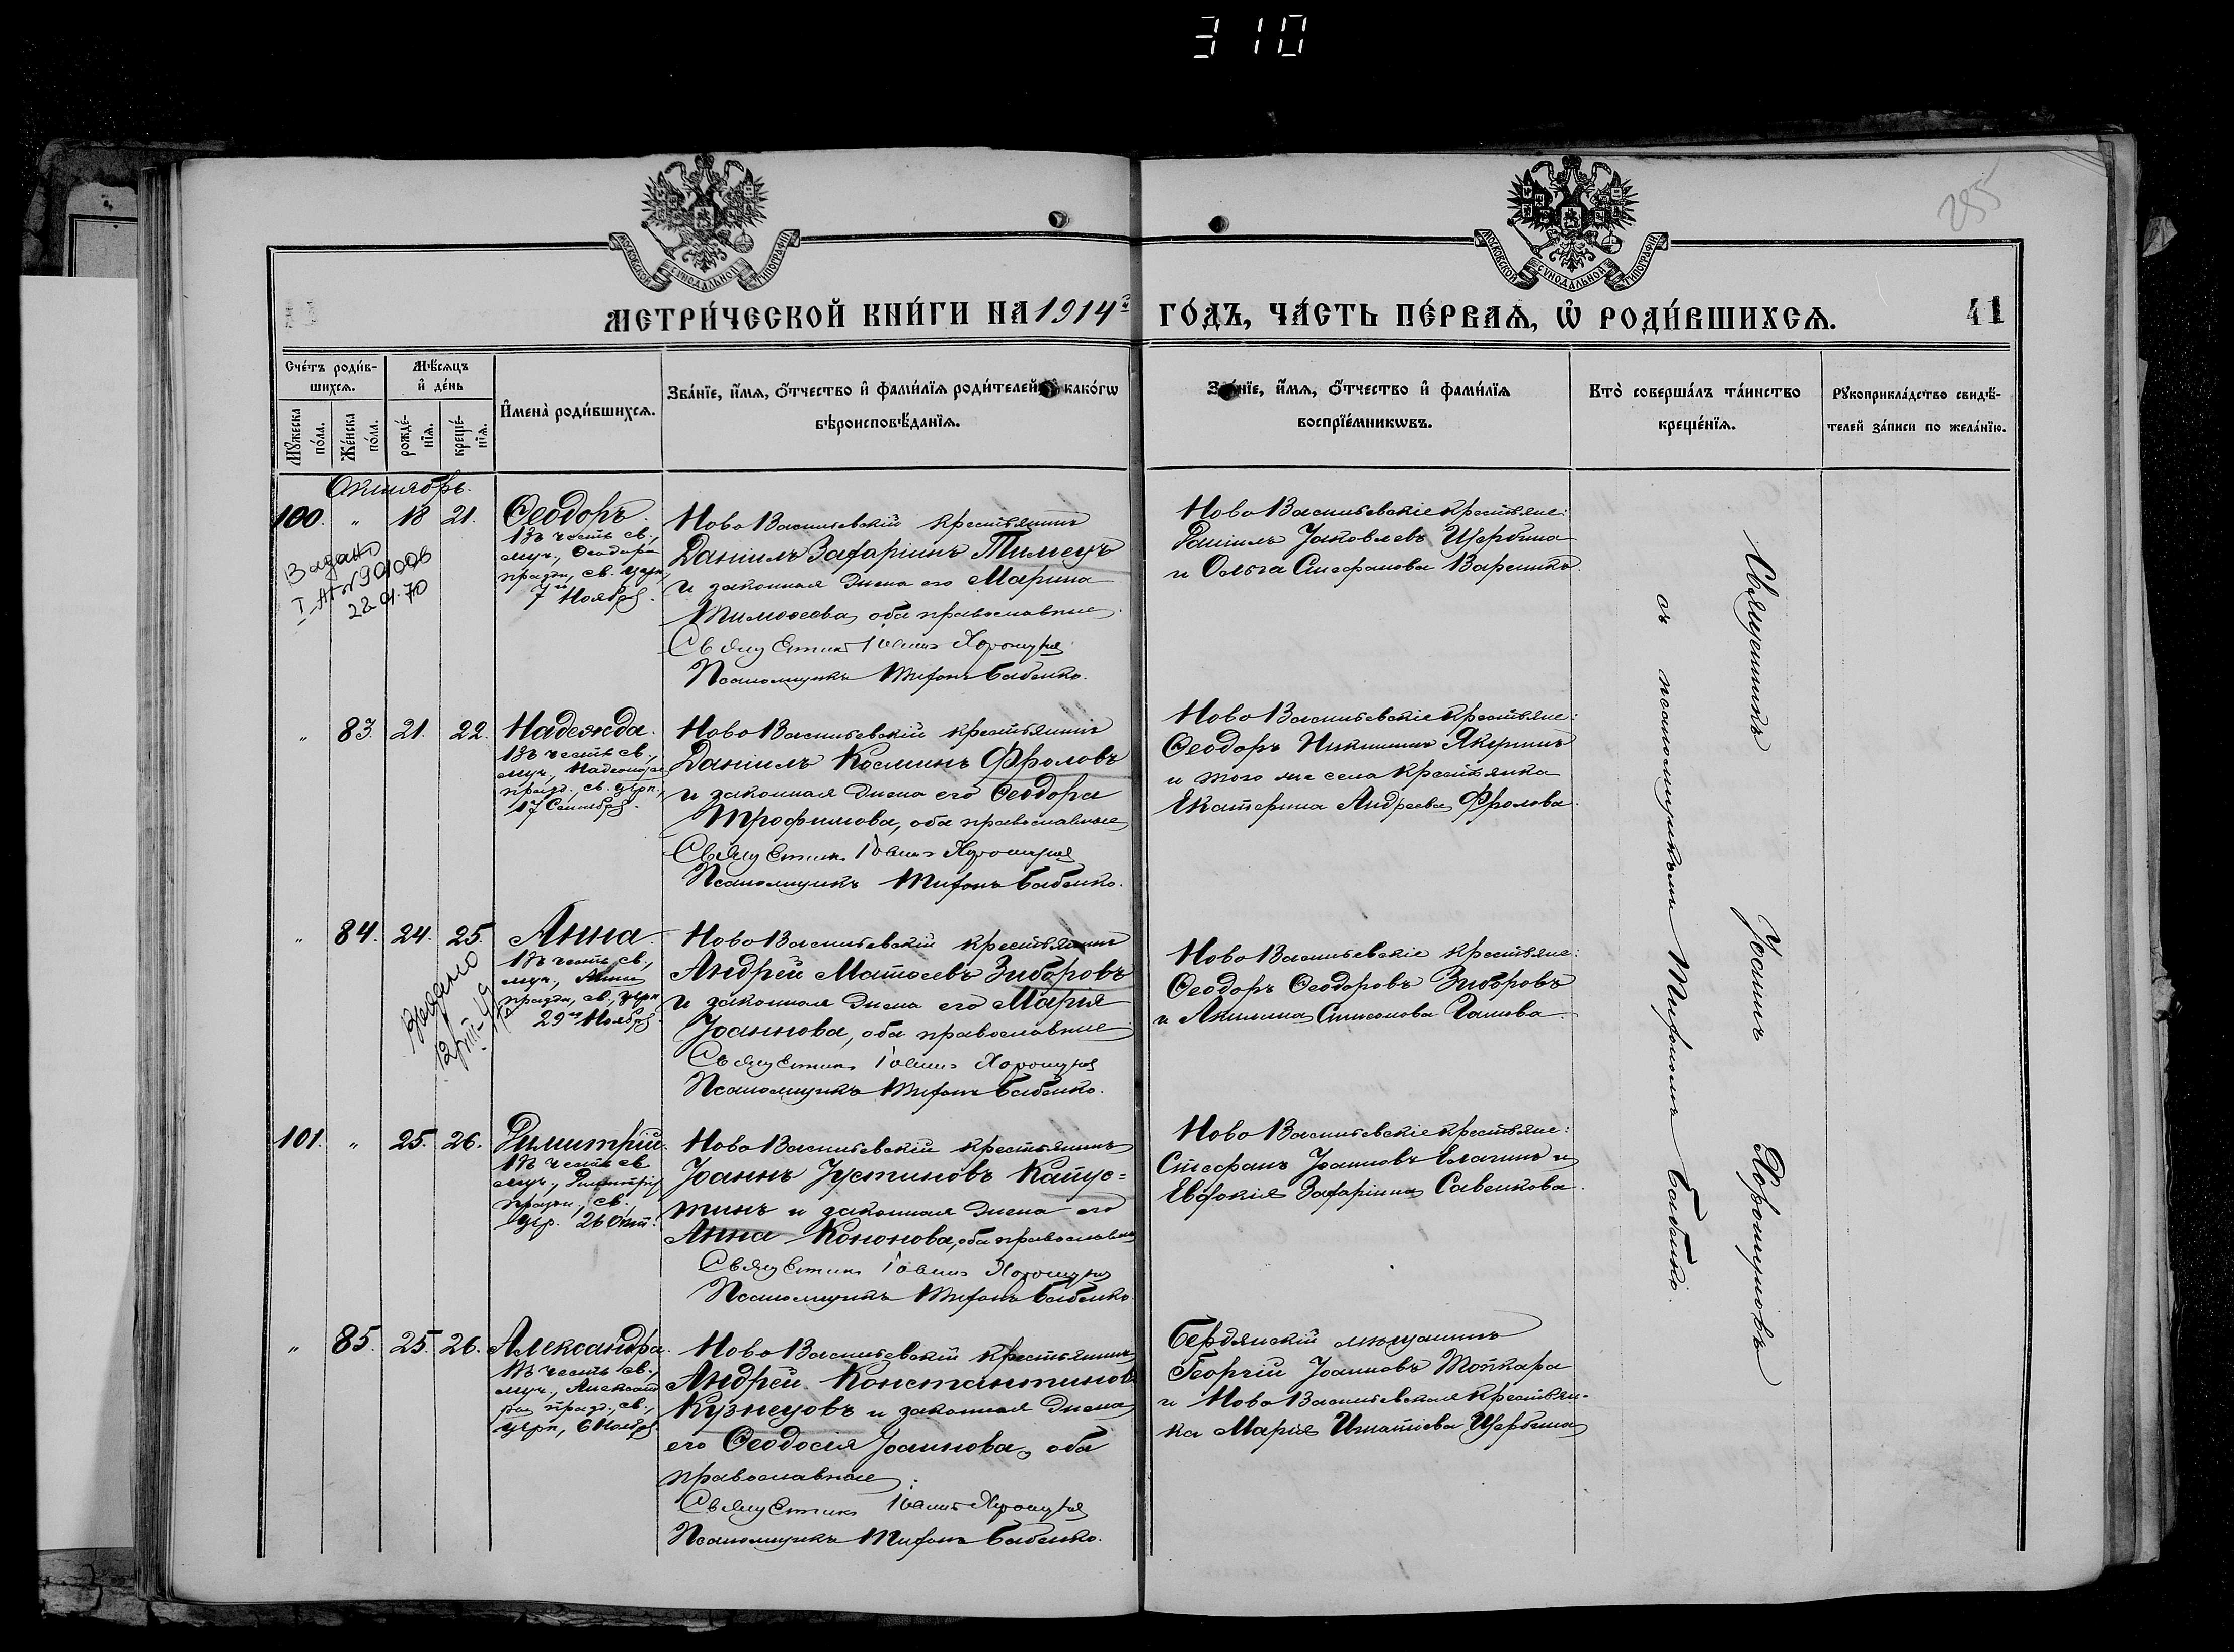 310
285
МОСКОВСКОЙ СѴНОДАЛЬНОЙ ТИПОГРАФІИ
МОСКОВСКОЙ СѴНОДАЛЬНОЙ ТИПОГРАФІИ
МЕТРИ́ЧЕСКОЙ КНИ́ГИ НА 1914й ГО́ДЪ, ЧА́СТЬ ПЕ́РВАѦ, Ѡ҆ РОДИ́ВШИХСѦ.
41
Сче́тъ роди́в-
шихсѧ.
Мꙋ́жеска по́ла.
Же́нска по́ла.
Мѣ́сѧцъ
и҆ де́нь
рожде́-
нїѧ.
креще́-
нїѧ.
И҆мена̀ роди́вшихсѧ.
Зва́нїе, и҆́мѧ, ѻ҆́тчество и҆ фами́лїѧ роди́телей, и҆ како́гѡ
вѣроисповѣ́данїѧ.
Зва́нїе, и҆́мѧ, ѻ҆́тчество и҆ фами́лїѧ
воспрїе́мникѡвъ.
Кто̀ соверша́лъ та́инство
креще́нїѧ.
Рꙋкоприкла́дство свидѣ́-
телей за́писи по жела́нїю.
Октябрь.
100. " 18 21. Ѳеодоръ.
Въ честь св.,
муч., Ѳеодора
празд., св. церк,
7 Ноября.
Выдано
22.
70
НовоВасильевскій крестьянинъ
Даніилъ Захаріинъ Тимецъ
и законная жена его Марина
Тимоѳеева, оба православные.
Священникъ Іоаннъ Хорошунов
Псаломщикъ Тифонъ Бабенко.
НовоВасильевскіе крестьяне:
Даніилъ Іаковлевъ Щербина
и Ольга Стефанова Вареникъ.
" 83. 21. 22. Надежда.
Въ честь св.,
муч., Надежды
празд., св. церк.,
17 Сентября.
НовоВасильевскій крестьянинъ
Даніилъ Косминъ Фроловъ
и законная жена его Ѳеодора
Трофимова, оба православные
Священникъ Іоаннъ Хорошунов
Псаломщикъ Тифонъ Бабенко.
НовоВасильевскіе крестьяне:
Ѳеодоръ Никитинъ Якунинъ
и того же села крестьянка
Екатерина Андреева Фролова.
" 84. 24. 25. Анна.
Въ честь св.,
муч., Анны
празд., св., церк.
29го Ноября.
Выдано
12/III-49
НовоВасильевскій крестьянинъ
Андрей Матѳеевъ Зиборовъ
и законная жена его Марія
Іоаннова, оба православные
Священникъ Іоаннъ Хорошунов
Псаломщикъ Тифонъ Бабенко.
НовоВасильевскіе крестьяне:
Ѳеодоръ Ѳеодоровъ Зиборовъ
и Акилина Симеонова
101. " 25. 26. Димитрій.
Въ честь св
муч., Димитрія
празд., св.
цер. 26 Окт.
НовоВасильевскій крестьянинъ
Іоаннъ Іустиновъ Капус=
тинъ и законная жена его
Анна Кононова, оба православные
Священникъ Іоаннъ Хорошунов
Псаломщикъ Тифонъ Бабенко.
НовоВасильевскіе крестьяне:
Стефанъ Іоанновъ Елагинъ и
Евдокія Захаріина Савенкова.
" 85. 25. 26. Александра.
Въ честь св.,
муч., Александ
ры празд., св.,
церк, 6 Ноября.
НовоВасильевскій крестьянинъ
Андрей Константиновъ
Кузнецовъ и законная жена
его Ѳеодосія Іоаннова, оба
православные.
Священникъ Іоаннъ Хорошунов
Псаломщикъ Тифонъ Бабенко.
Бердянскій мѣщанинъ
Георгій Іоанновъ Топкара
и НовоВасильевская крестьян-
ка Марія Игнатіева Щербина
Священникъ Іоаннъ Хорошуновъ
съ псаломщикомъ Тифономъ Бабенко.